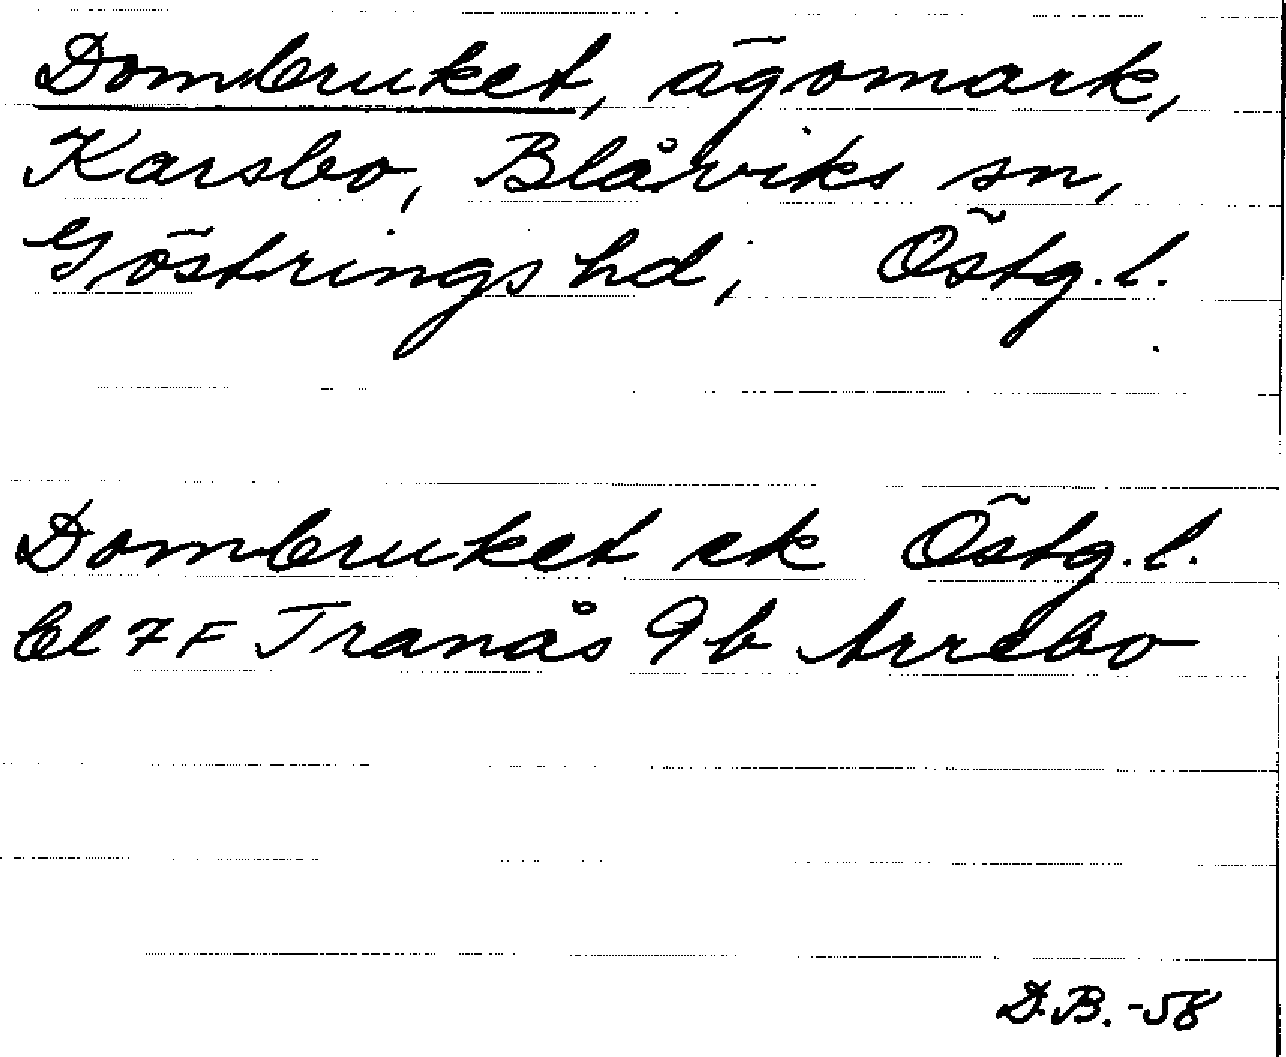 Dombruket, ägomark,
Karsbo, Blåviks sn,
Göstrings hd, Östg.l.
Dombruket ek Östg.l.
bl 7F Tranås 9b Arrebo
D.B. -58